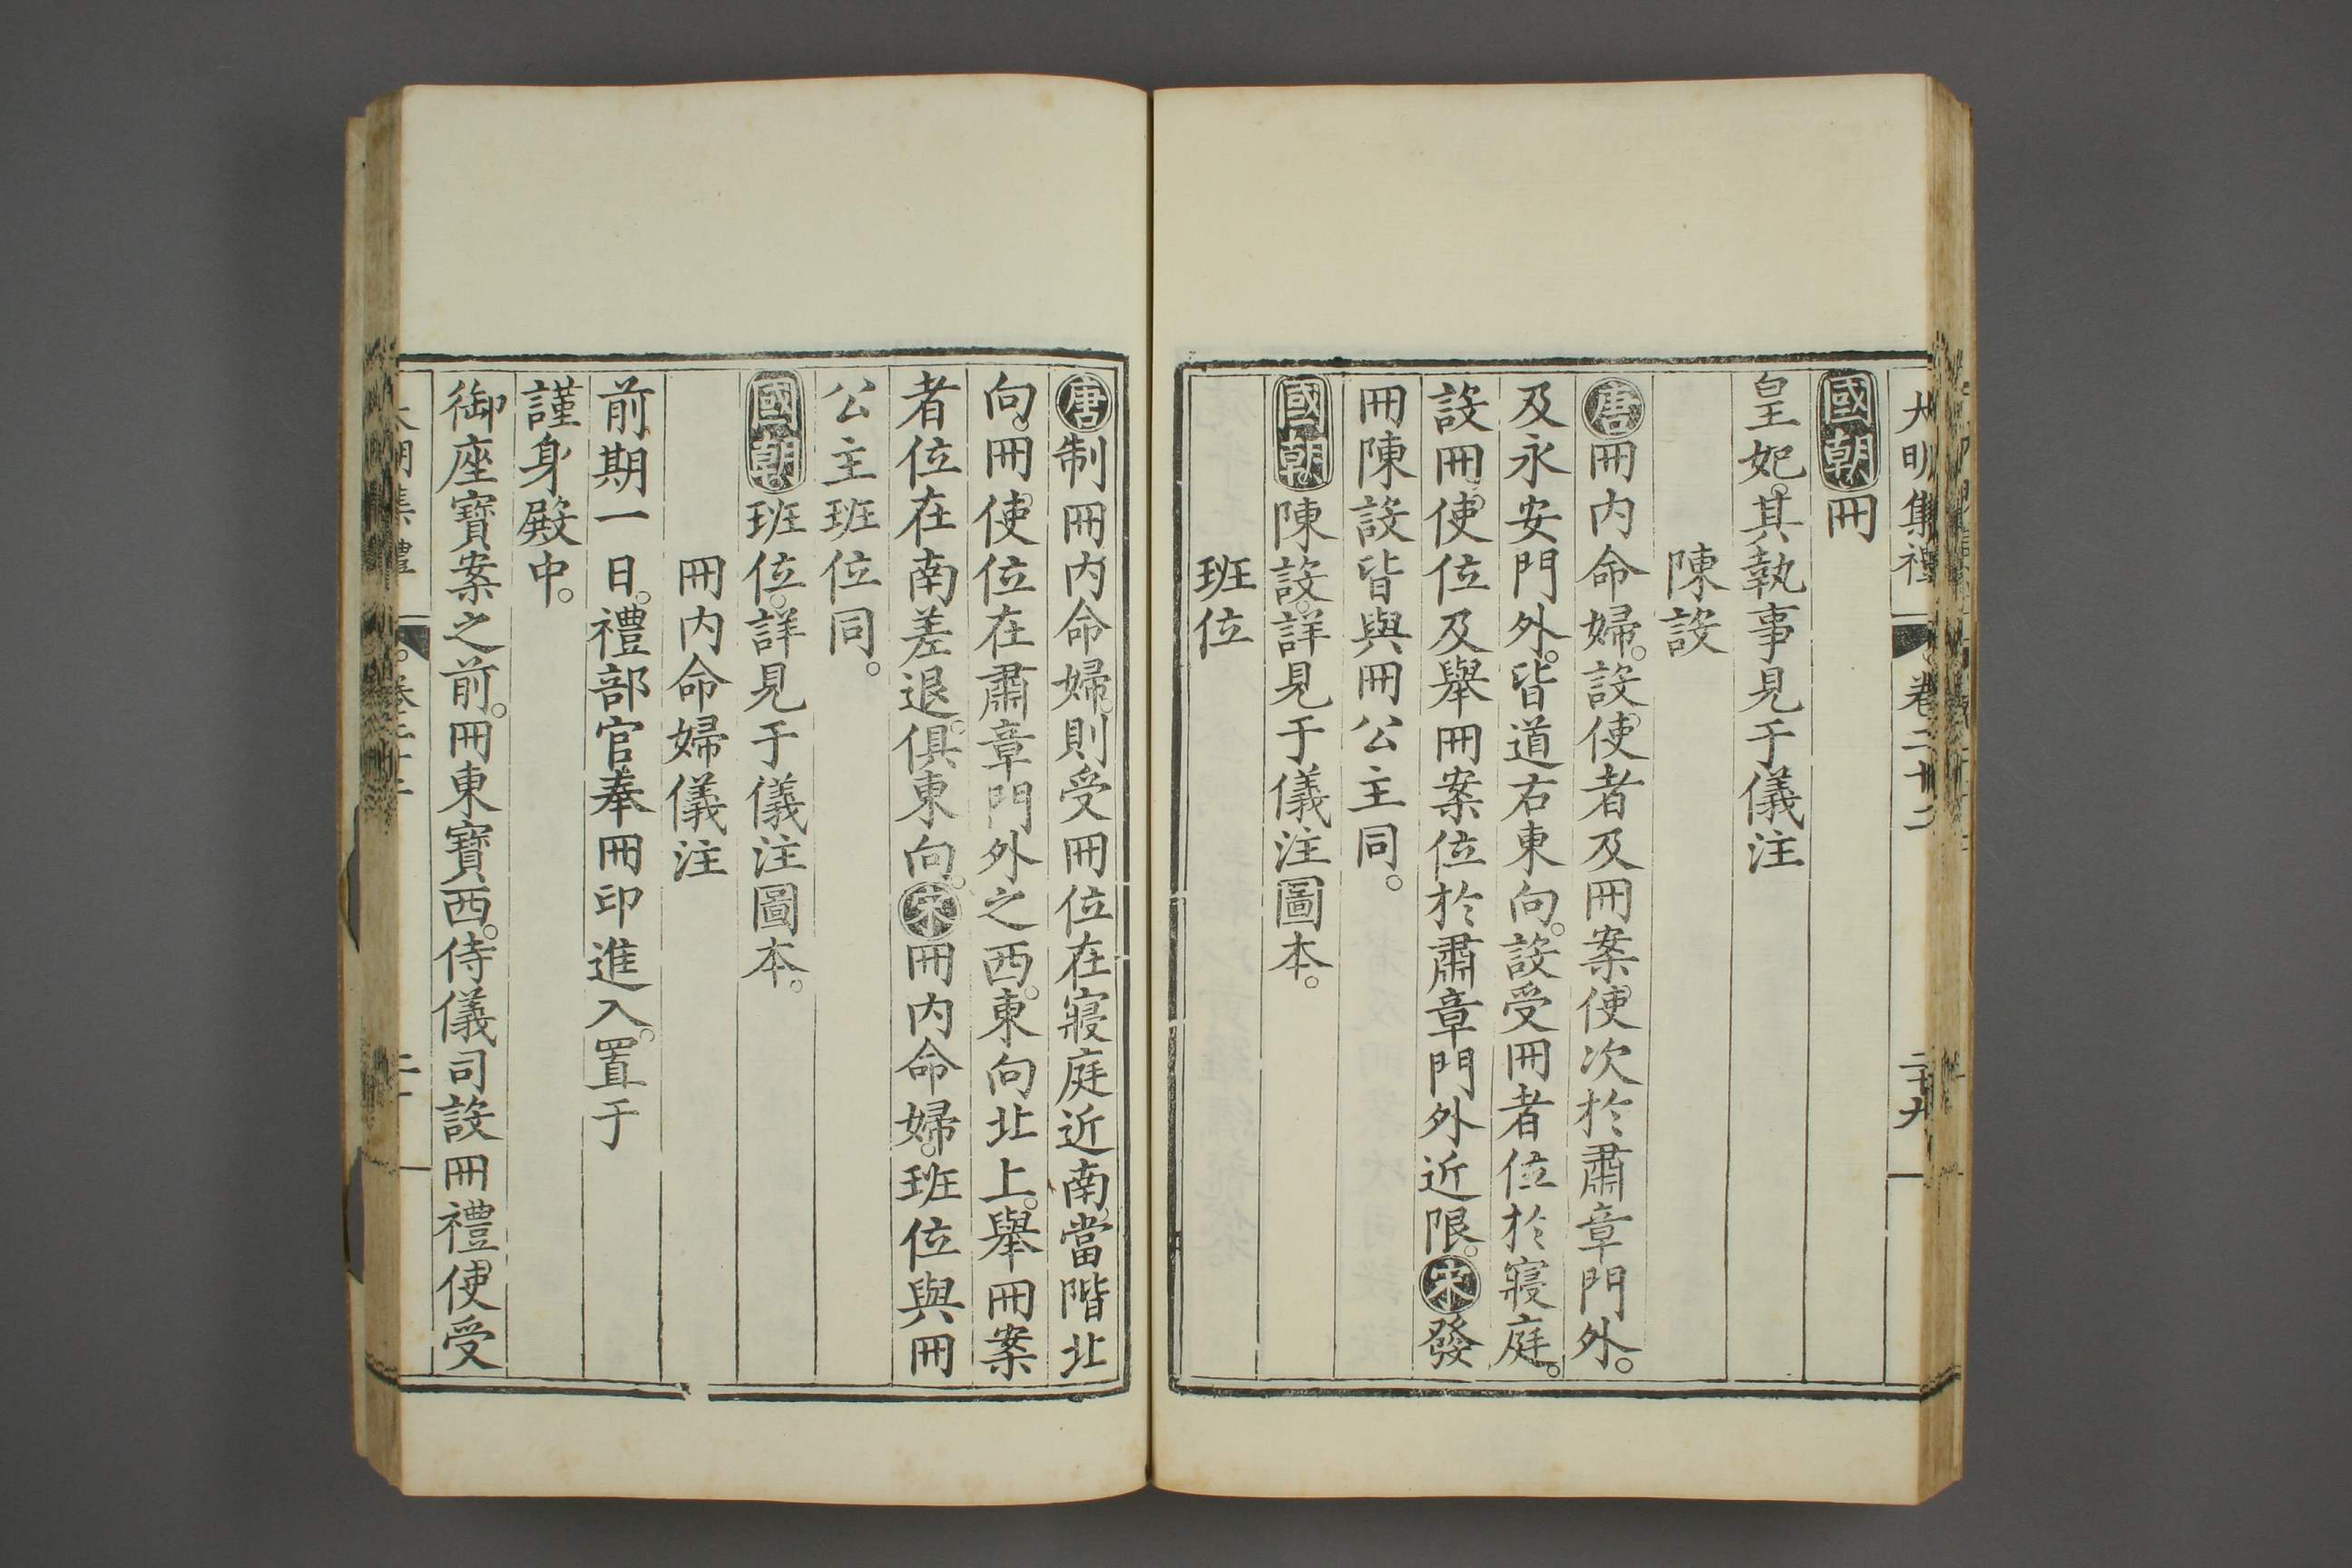 大明集禮 卷二十二 二十九
國朝冊
皇妃。其執事見于儀注
陳設
唐冊内命婦。設使者及冊案使次於肅章門外。
及永安門外。皆道右東向。設受冊者位於寢庭。
設冊。使位及舉冊案位於肅章門外近限。宋發
冊陳設皆與冊公主同。
國朝陳設。詳見于儀注圖本。
班位
唐制冊内命婦。則受冊位在寢庭近南。當階北
向。冊使位在肅章門外之西。東向北上。舉冊案
者位在南差退。俱東向。宋冊内命婦。班位與冊
公主班位同。
國朝班位。詳見于儀注圖本。
冊内命婦儀注
前期一日。禮部官奉冊印進入。置于
謹身殿中。
御座寶案之前。冊東寶西。侍儀司設冊禮使受